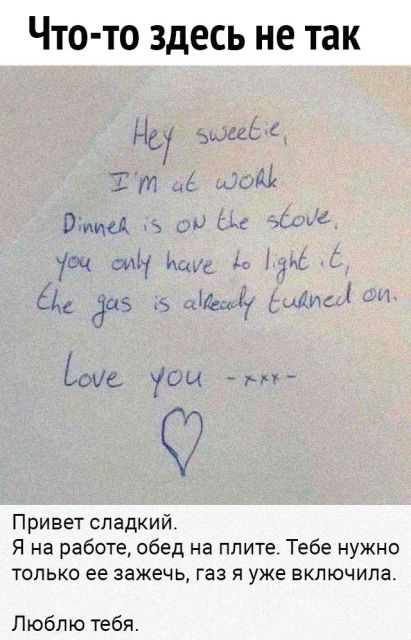 Что-то здесь не так
Hey sweetie,
I'm at work
Dinner is on the stove,
you only have to light it,
the gas is already turned on.
Love you -xxx-
Привет сладкий.
Я на работе, обед на плите. Тебе нужно
только ее зажечь, газ я уже включила.
Люблю тебя.